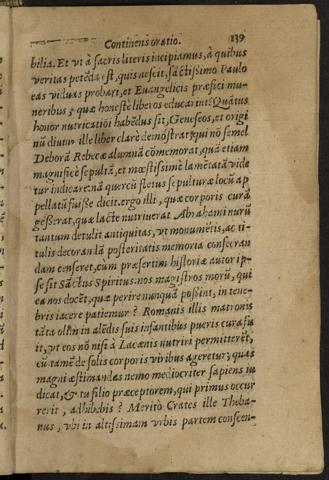 Continens oratio. 139
bilia. Et vt à sacris literis incipiamus, à quibus
veritas petẽda est, quis nescit, sãctissimo Paulo
eas viduas probari, et Euangelicis præfici mu-
neribus, quæ honestè liberos educarint? Quãtus
honor nutricationi habẽdus sit, Geneseos, et origi
nũ diuturn ille liber clarè demõstrat, qui nõ semel
Deborã Rebecæ alumnã cõmemorat, quã etiam
magnificè sepultã, et mœstissimè lamẽtatã vide
tur indicare: nã quercũ fletus sepulturæ locũ ap
pellatũ fuisse dicit. ergo illi, quæ corporis curã
gesserat, quæ lacte nutriuerat Abrahami nurũ
tantum detulit antiquitas, vt monumẽtis, ac ti-
tulis decorandã posteritatis memoria consecran
dam censeret, cum præsertim historiæ autor ip-
se sit Sãctus Spiritus. nos magistros morũ, qui
ea nos docẽt, quæ perire nunquã possint, in tene
bris iacere patiemur? Romanis illis matronis
tãta olim in alẽdis suis infantibus pueris cura fu
it, vt eos nõ nisi à Lacænis nutriri permitterẽt,
cũ tamẽ de solis corporis viribus ageretur; quas
magni æstimandas nemo mediocriter sapiens iu
dicat, & tu filio præceptorem, qui primus occur
rerit, adhibebis? Meritò Crates ille Theba-
nus, vbi in altissimam vrbis partem conscen-